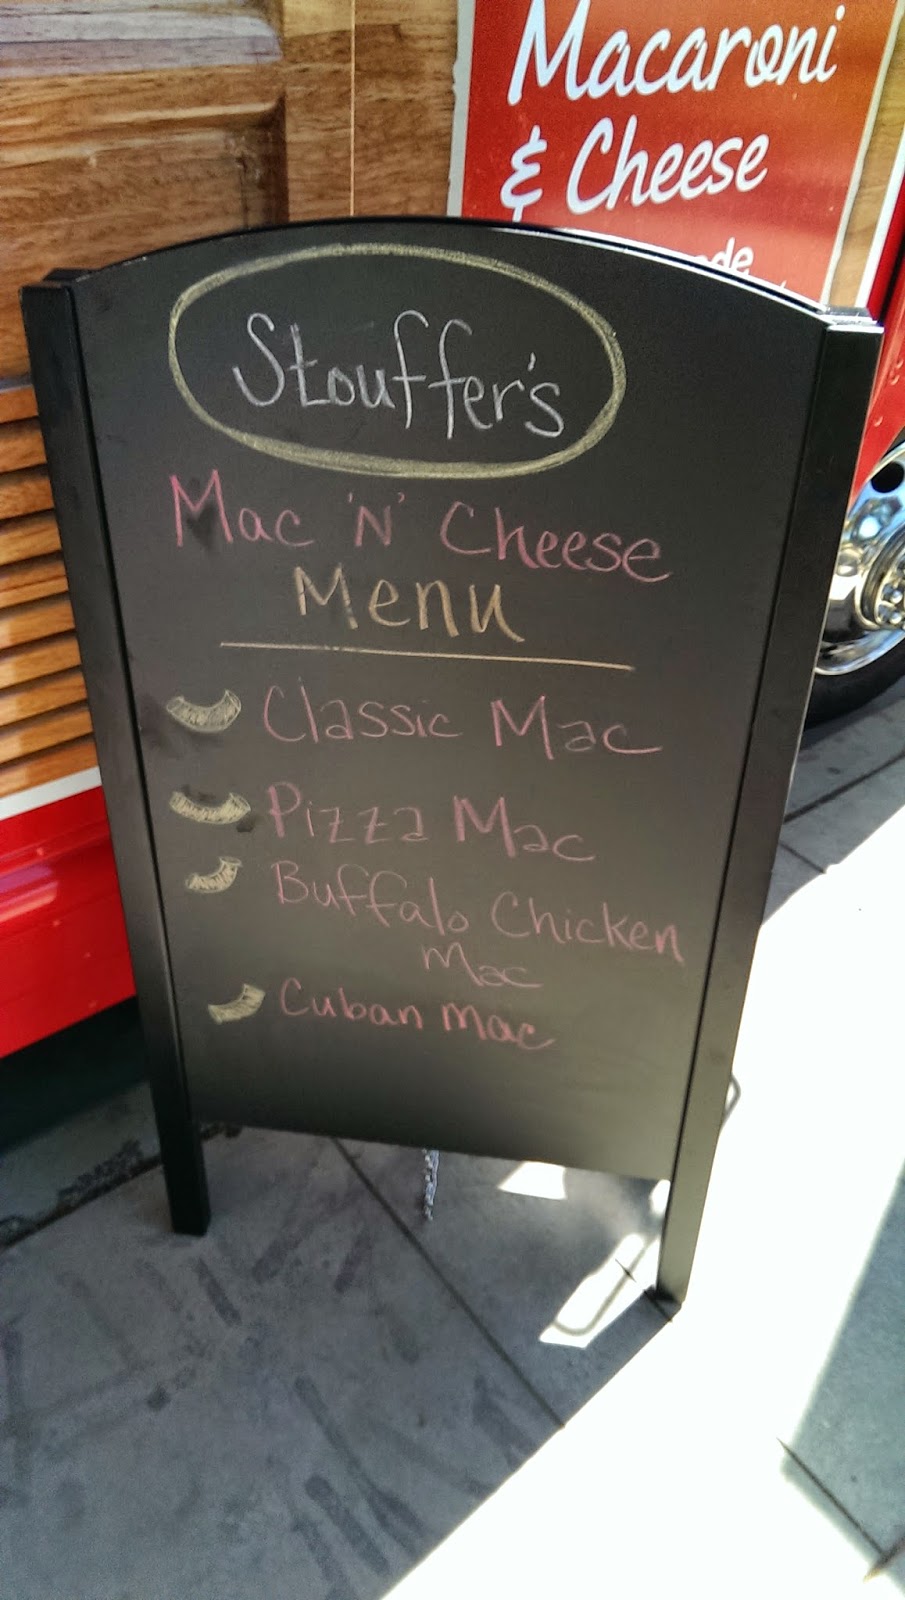 Macaroni
& Cheese
Stouffer's
Mac 'N' Cheese
Menu
Classic Mac
Pizza Mac
Buffalo Chicken
Mac
Cuban Mac